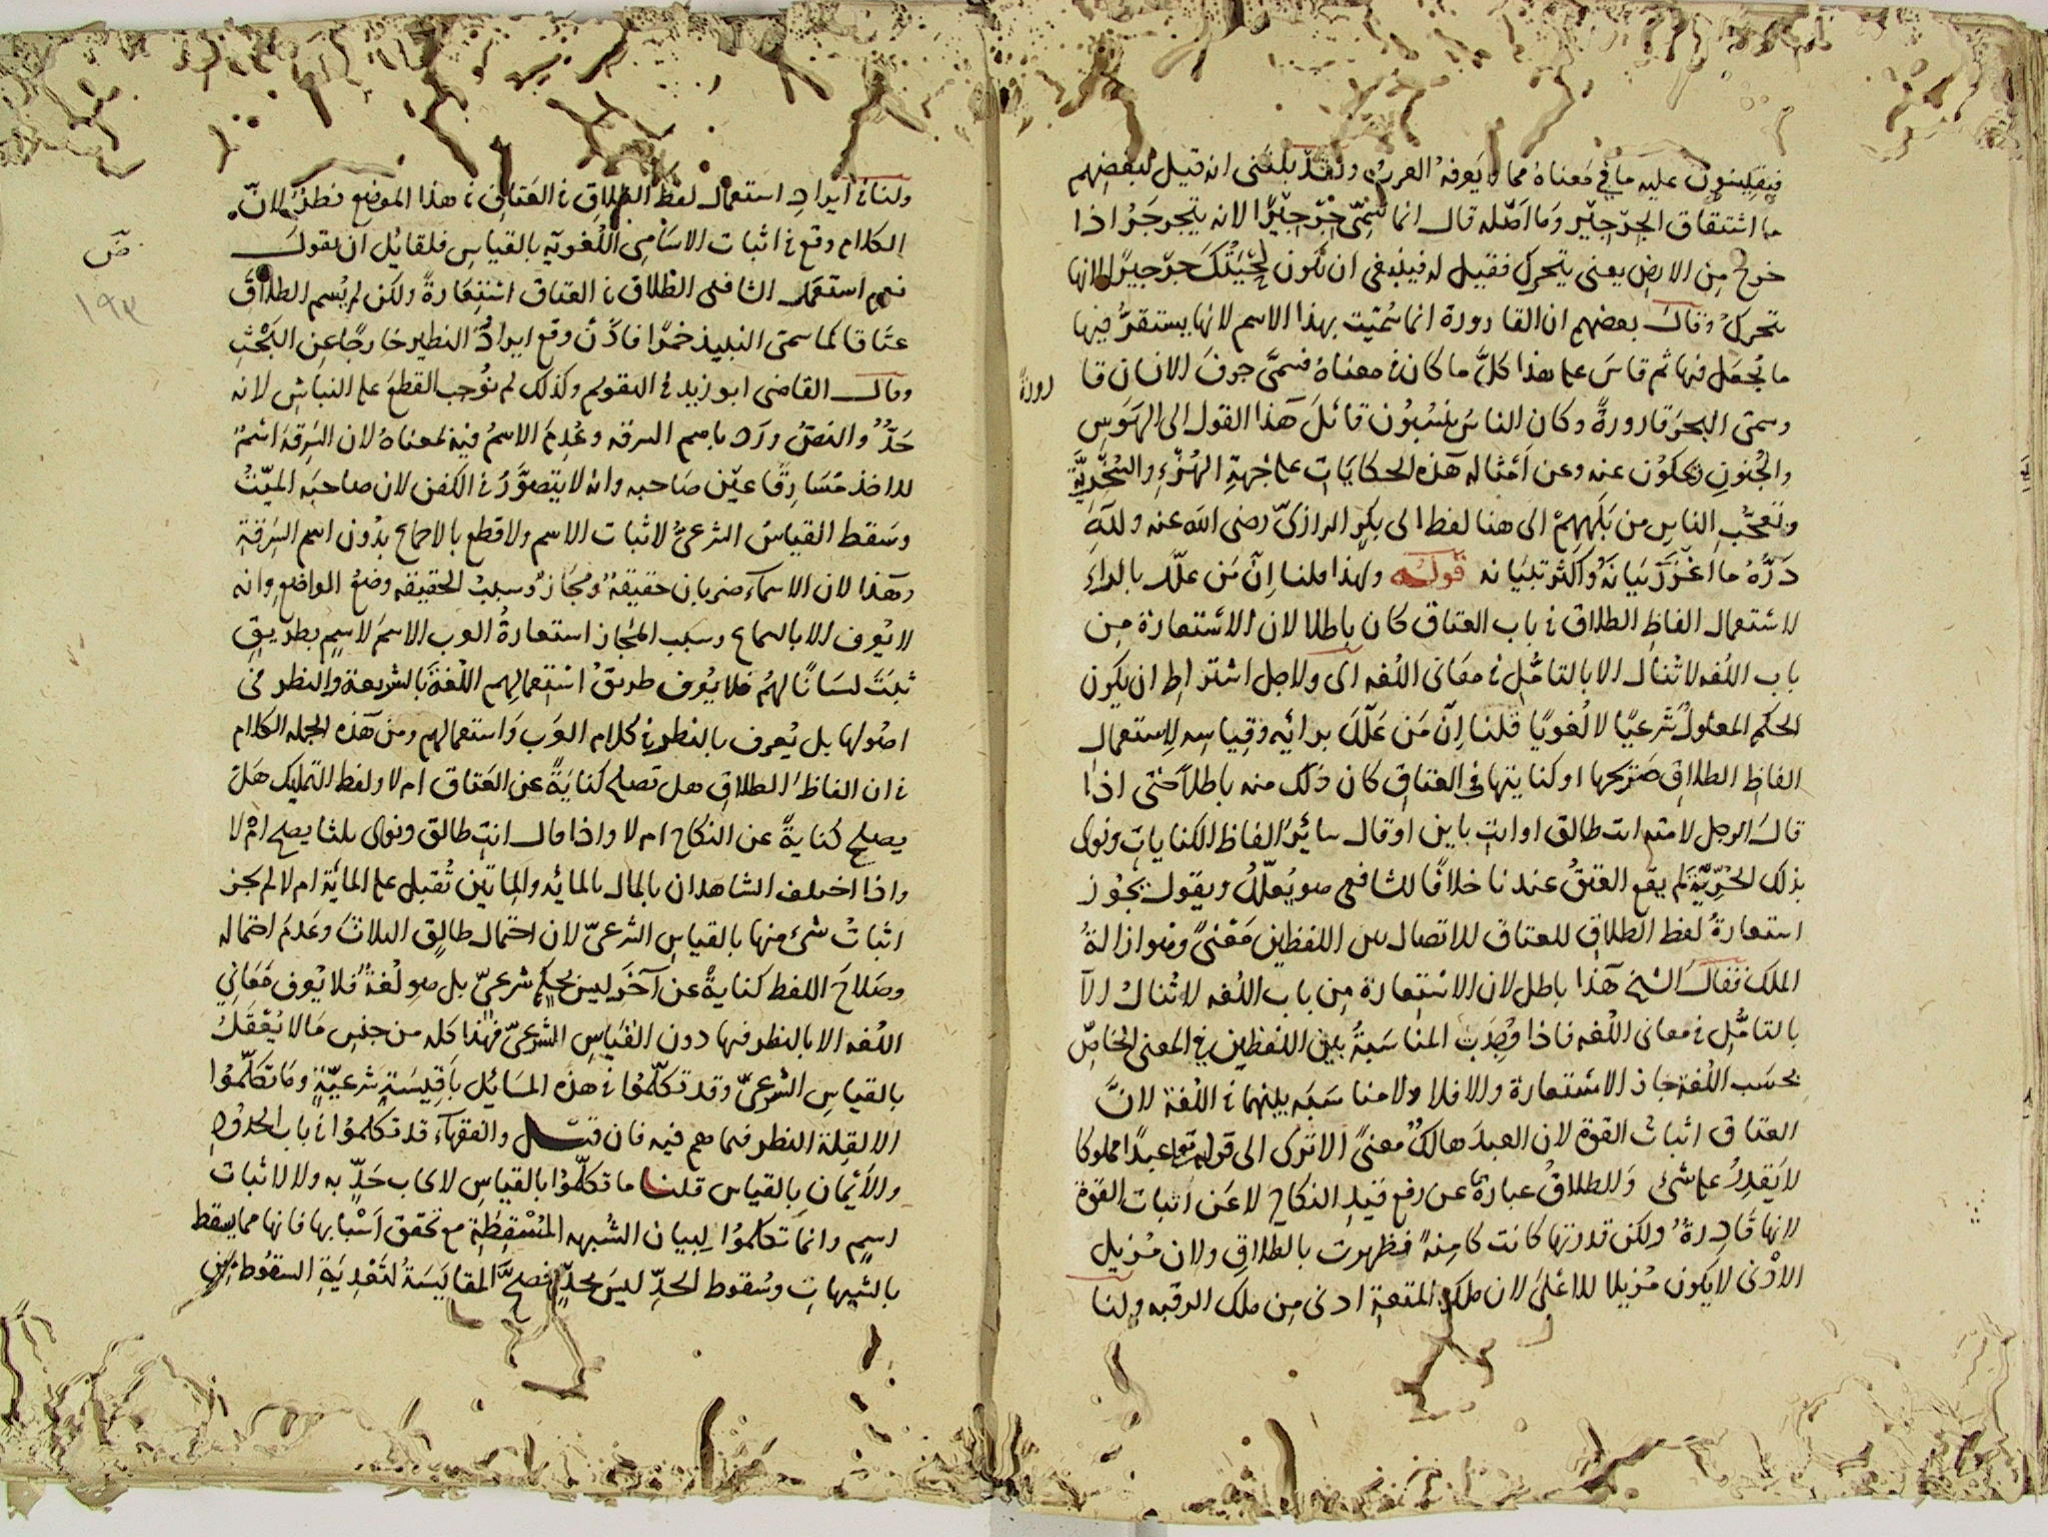 فيقيسون عليه ما في معناه مما لا يعرفه العرب ولقد بلغنى انه قيل لبعضهم
ما اشتقاق الجرجير وما اصله قال انما سمى جرجيرا لانه يتجرجر اذا
خرج من الارض يعنى يتحرك فقيل له فينبغى ان تكون لحيتك جرجيرا لانها
تتحرك وقال بعضهم ان القارورة انما سميت بهذا الاسم لانها يستقر فيها
ما يجعل فيها ثم قاس على هذا كل ما كان فى معناه فسمى جوف الانسان قا
رورة
وسمى البحر قارورة وكان الناس ينسبون قائل هذا القول الى الهوس
والجنون ويحكون عنه وعن امثاله هذه الحكايات على جهة الهزء والسخرية
وتعجب الناس من بلههم الى هنا لفظ ابى بكر الرازى رضى الله عنه ولله
دره ما اغزر بيانه واكثر تبيانه قوله ولهذا قلنا ان من علل بالراى
لاستعمال الفاظ الطلاق فى باب العتاق كان باطلا لان الاستعارة من
باب اللغه لا تنال الا بالتامل فى معانى اللغه اى ولاجل اشتراط ان يكون
الحكم المعلول شرعيا لا لغويا قلنا ان من علل برائيه وقياسه لاستعمال
الفاظ الطلاق صريحها او كنايتها فى العتاق كان ذلك منه باطلا حتى اذا
قال الرجل لامته انت طالق او انت باين او قال سائر الفاظ الكنايات ونوى
بذلك الحرية لم يقع العتق عندنا خلافا للشافعى هو يعلل ويقول يجوز
استعارة لفظ الطلاق للعتاق للاتصال بين اللفظين معنى وهو ازالة
الملك فقال الشيخ هذا باطل لان الاستعارة من باب اللغه لا تنال الا
بالتامل فى معانى اللغه فاذا وجدت المناسبة بين اللفظين فى المعنى الخاص
بحسب اللغة جاز الاستعارة والا فلا ولا مناسبه بينهما فى اللغة لان
العتاق اثبات القوة لان العبد هالك معنى الا ترى الى قوله تعالى عبدا مملوكا
لا يقدر على شئ والطلاق عبارة عن رفع قيد النكاح لا عن اثبات القوة
لانها قادرة ولكن قدرتها كانت كامنة فظهرت بالطلاق ولان مزيل
الادنى لا يكون مزيلا للاعلى لان ملك المتعة ادنى من ملك الرقبه ولنا
ولنا فى ايراد استعمال لفظ الطلاق فى العتاق فى هذا الموضع نظر لان
الكلام وقع فى اثبات الاسامى اللغويه بالقياس فلقائل ان يقول
نعم استعمل الشافعى الطلاق فى العتاق استعارة ولكن لم يسم الطلاق
عتاقا كما سمى النبيذ خمرا فاذن وقع ايراد النظير خارجا عن البحث
وقال القاضى ابو زيد فى التقويم وكذلك لم نوجب القطع على النباش لانه
حد والنص ورد باسم السرقه وعدم الاسم فيه لمعناه لان السرقة اسم
للاخذ مسارقا عين صاحبه وانه لا يتصور فى الكفن لان صاحبه الميت
وسقط القياس الشرعى لاثبات الاسم ولا قطع بالاجماع بدون اسم السرقة
وهذا لان الاسماء ضربان حقيقة ومجاز وسبب الحقيقه وضع الواضع وانه
لا يعرف الا بالسماع وسبب المجاز استعارة العرب الاسم لاسم بطريق
ثبت لسانا لهم فلا يعرف طريق استعمالهم اللغة بالشريعة والنظر فى
اصولها بل يعرف بالنظر فى كلام العرب واستعمالهم ومن هذه الجمله الكلام
فى ان الفاظ الطلاق هل تصلح كناية عن العتاق ام لا ولفظ التمليك هل
يصلح كناية عن النكاح ام لا واذا قال انت طالق ونوى ثلثا يصح ام لا
واذا اختلف الشاهدان بالمال بالمائه والماتين تقبل على المائة ام لا لم يجز
اثبات شئ منها بالقياس الشرعى لان احتمال طالق الثلاث وعدم احتماله
وصلاح اللفظ كناية عن آخر ليس بحكم شرعى بل هو لغة فلا يعرف معانى
اللغه الا بالنظر فيها دون القياس الشرعى فهذا كله من جنس ما لا يعقل
بالقياس الشرعى وقد تكلموا فى هذه المسائل باقيسة شرعية وما تكلموا
الا لقلة النظر فيما هم فيه فان قيل والفقهاء قد تكلموا فى باب الحدود
والأيمان بالقياس قلنا ما تكلموا بالقياس لايجاب حد به ولا لاثبات
اسم وانما تكلموا لبيان الشبهه المسقطة مع تحقق اسبابها فانها مما يسقط
بالشبهات وسقوط الحد ليس بحد فصح المقايسة لتعدية السقوط من
١٩٣